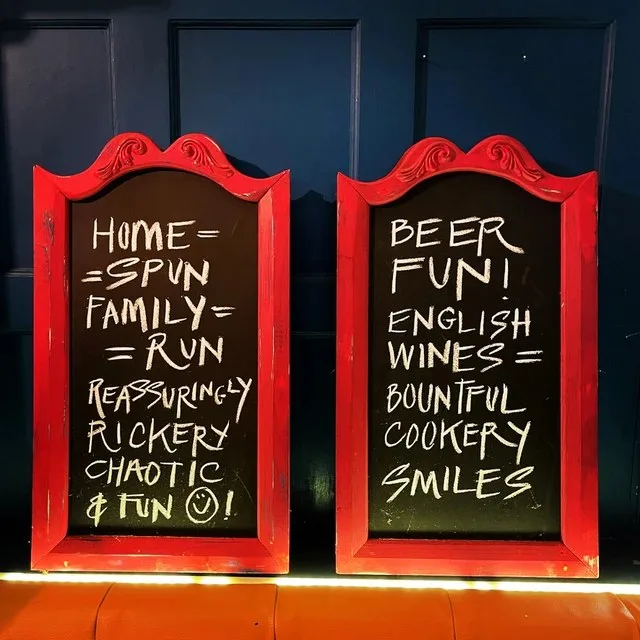 HOME =
= SPUN
FAMILY =
= RUN
REASSURINGLY
RICKERY
CHAOTIC
& FUN ☺!
BEER
FUN!
ENGLISH
WINES =
BOUNTFUL
COOKERY
SMILES